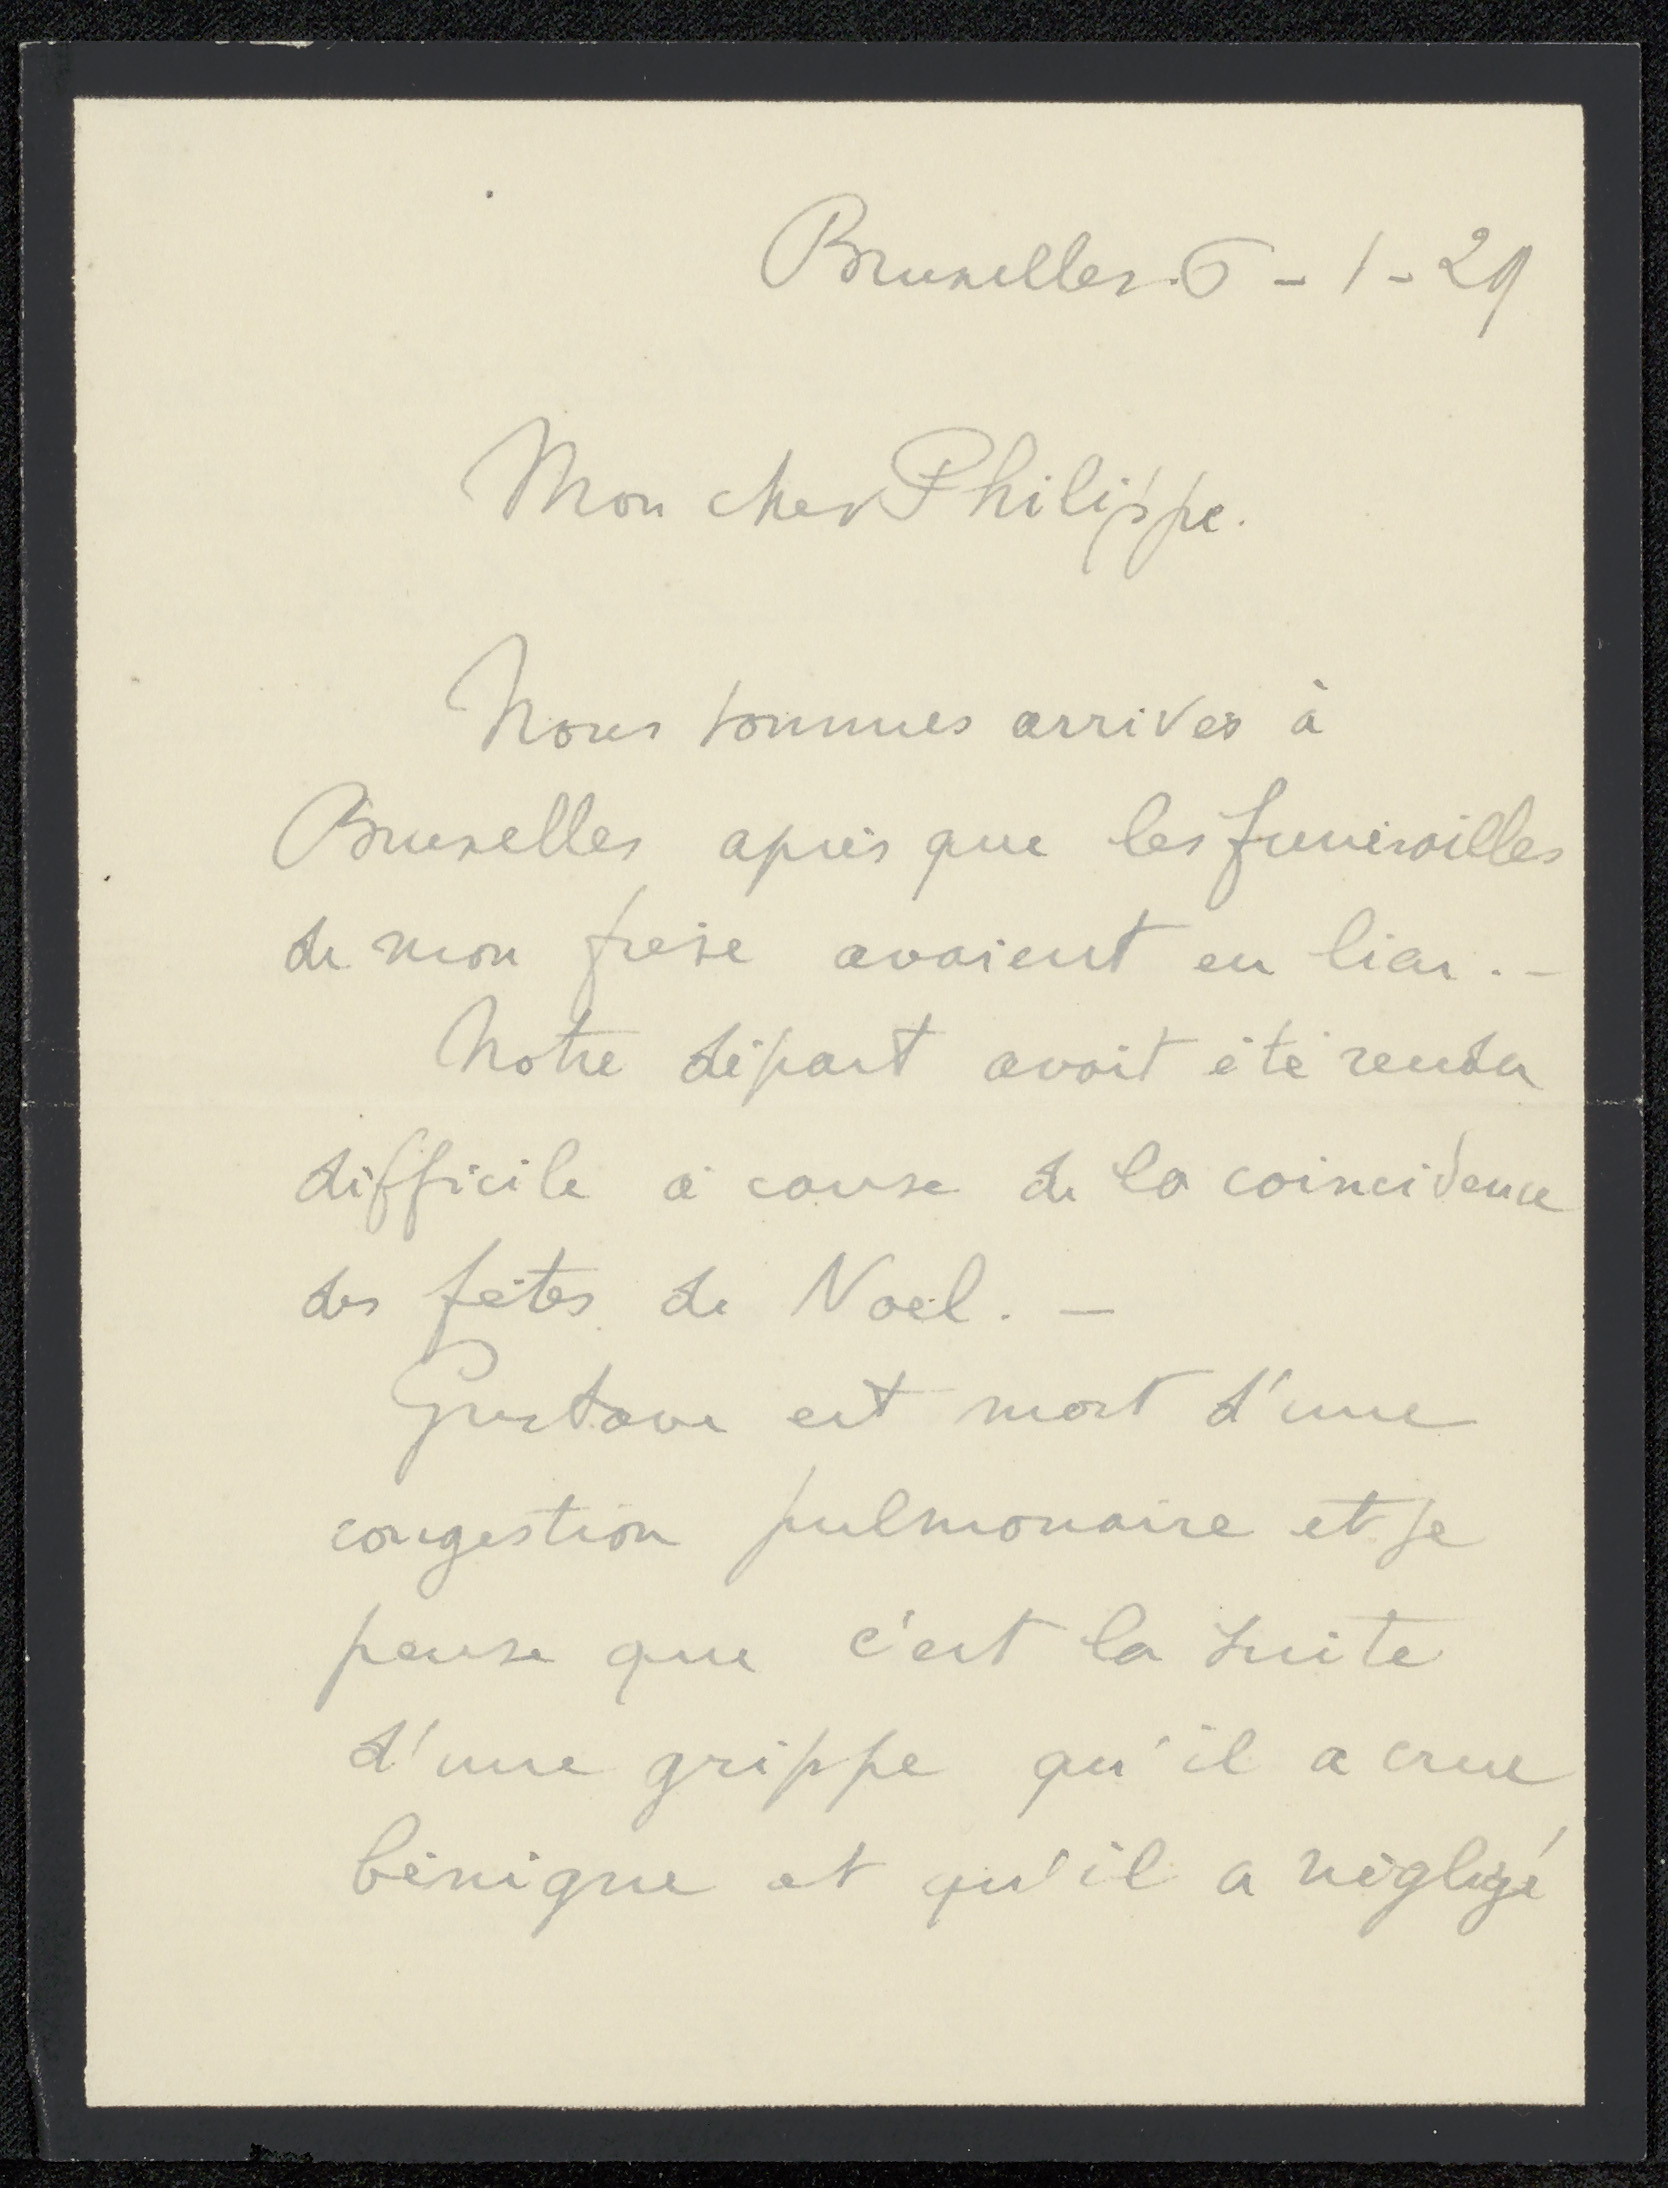 Bruxelles. 6 - 1 - 29
Mon cher Philippe.
Nous sommes arrivés à
Bruxelles après que les funérailles
de mon frère avaient eu lieu. -
Notre départ avait été rendu
difficile à cause de la coincidence
des fêtes de Noël. -
Gustave est mort d'une
congestion pulmonaire et je
pense que c'est la suite
d'une grippe qu'il a crue
bénigne et qu'il a négligé